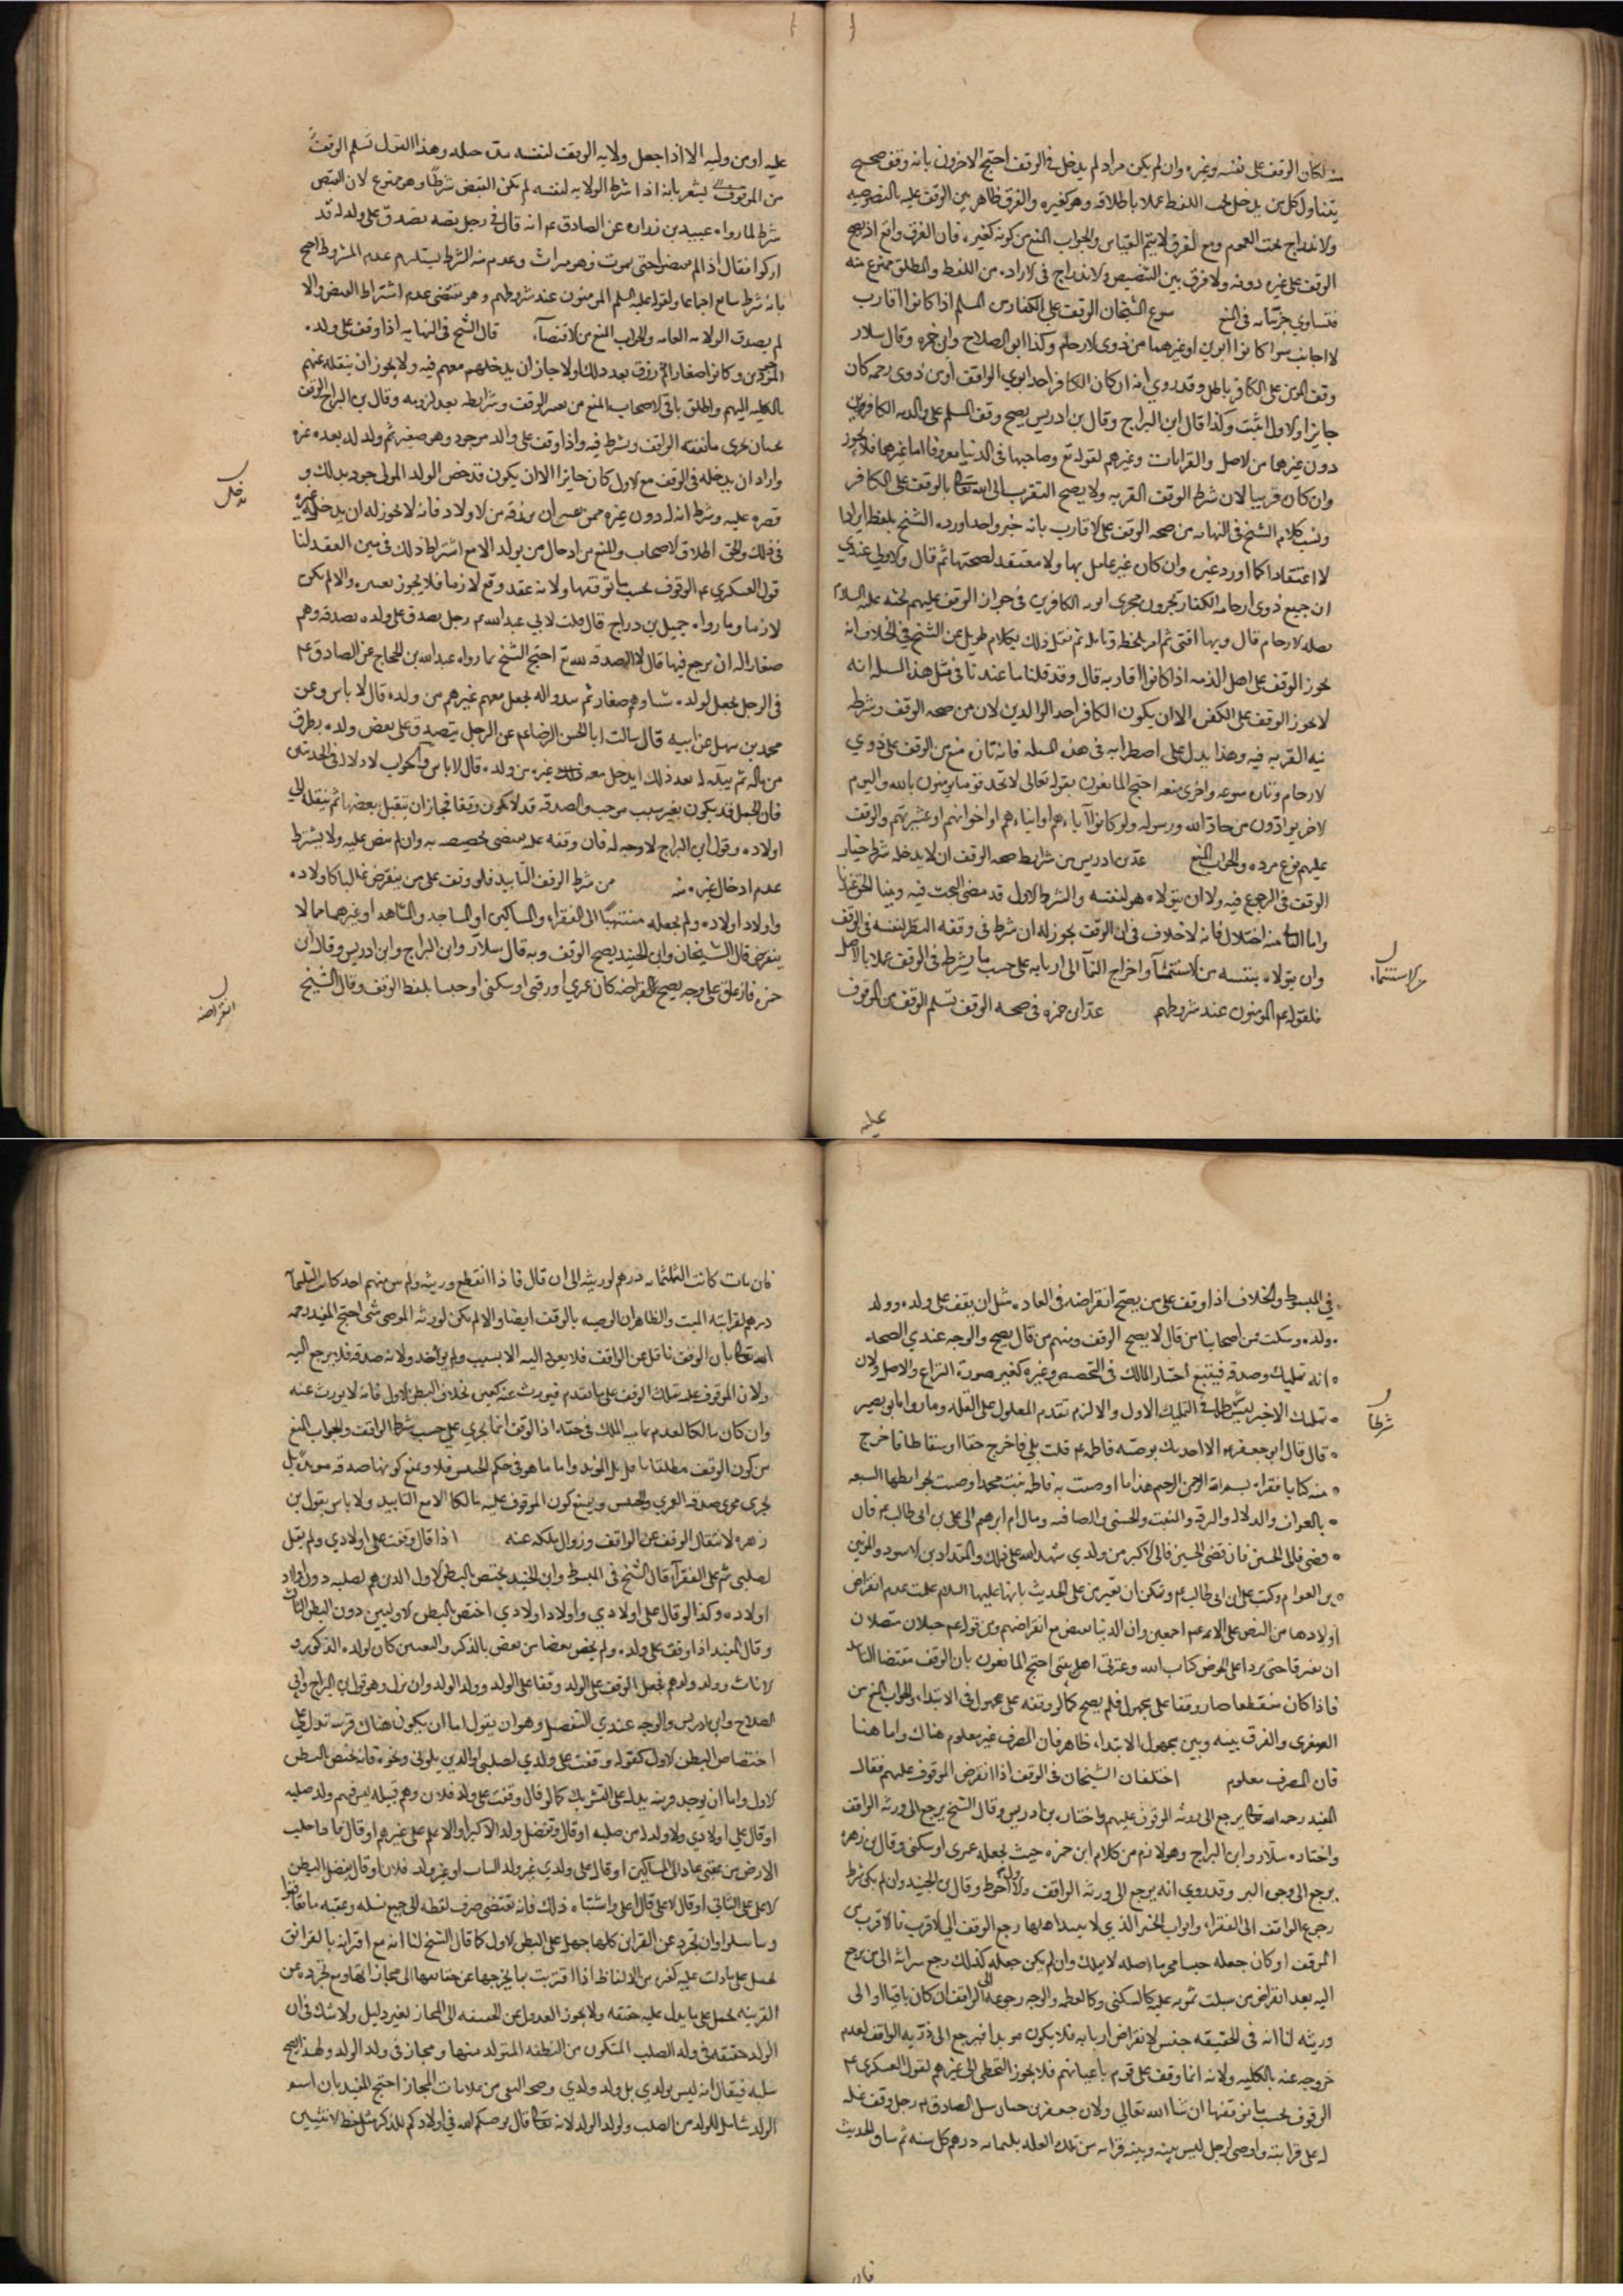 منه لكان الوقف على نفسه وغيره وان لم يكن مراد لم يدخل فى الوقف احتج الاخرون بانه وقف صحيح
يتناول كل من يدخل تحت اللفظ عملا باطلاقه وهو كغيره والفرق ظاهر بين الوقف عليه بالخصوصيه
ولاندراج تحت العموم ومع الفرق لا يتم القياس والجواب المنع من كونه كغيره فان الفرق واقع اذ يصح
الوقف على غيره دونه ولا فرق بين التنصيص ولاندراج فى لاراده من اللفظ والمطلق ممنوع منه
فتساوي جزئياته فى المنع سوغ الشيخان الوقف على الكفار من المسلم اذا كانوا اقارب
لا اجانب سوا كانوا ابوين او غيرهما من ذوى لارحام وكذا ابو الصلاح وابن حمزه وقال سلار
وقف المومن على الكافر باطل وقد روي انه ان كان الكافر احد ابوي الواقف او من ذوى رحمه كان
جايزا ولاول اثبت وكذا قال ابن البراج وقال بن ادريس يصح وقف المسلم على والديه الكافرين
دون غيرهما من لاصل والقرابات وغيرهم لقوله تع وصاحبهما فى الدنيا معروفا اما غيرهما فلا يجوز
وان كان قريبا لان شرط الوقف القربه ولا يصح التقرب الى الله تعالى بالوقف على الكافر
ونسب كلام الشيخ فى النهايه من صحه الوقف على لاقارب بانه خبر واحد اورده الشيخ بلفظه ايرادا
لا اعتقادا كما اورد غيره وان كان غير عامل بها ولا معتقد لصحتها ثم قال ولاولى عندي
ان جميع ذوى ارحامه الكفار يجرون مجرى ابويه الكافرين فى جواز الوقف عليهم لحثه عليه السلام
بصله لارحام قال وبها افتى ثم امر بلحظه وتامله ثم نقل ذلك بكلام طويل عن الشيخ فى الخلاف انه
يجوز الوقف على اهل الذمه اذا كانوا اقاربه قال وقد قلنا ما عندنا فى مثل هذه المسله انه
لا يجوز الوقف على الكفر الا ان يكون الكافر احد الوالدين لان من صحه الوقف وشرطه
نيه القربه فيه وهذا يدل على اضطرابه فى هذه المسله فانه تاره منع من الوقف على ذوي
لارحام وتاره سوغه واخرى منعه احتج المانعون بقوله تعالى لا تجد قوما يومنون بالله واليوم
لاخر يوادون من حاد الله ورسوله ولو كانوا آباءهم او ابناءهم او اخوانهم او عشيرتهم والوقف
عليهم نوع موده والجواب المنع عد بن ادريس من شرايط صحه الوقف ان لا يدخله شرط خيار
الوقف فى الرجوع فيه ولا ان يتولاه هو لنفسه والشرط الاول قد مضى البحث فيه وبينا الحق عندنا
واما الثانى منه اختلال فانه لا خلاف فى ان الوقف يجوز له ان شرط فى وقفه النظر لنفسه فى الوقف
وان يتولاه بنفسه من لاستنماء واخراج النماء الى اربابه على حسب ما يشرطه فى الوقف عملا بالاصل
فلقوله عم المومنون عند شروطهم عد ابن حمزه فى صحه الوقف تسلم الوقف من الوقوف
عليه
عليه او من وليه الا اذا جعل ولايه الوقف لنفسه مده حياته وهذا القول تسلم الوقف
من الموقوف يشعر بانه اذا شرط الولايه لنفسه لم يكن القبض شرطا وهو ممنوع لان القبض
شرط لما رواه عبيد بن زراره عن الصادق عم انه قال فى رجل تصدق على ولد له قد
ادركوا فقال اذا لم يقبضوا حتى يموت فهو ميراث وعدم منه الشرط يستلزم عدم المشروط احتج
بانه شرط سايغ اجماعا ولقوله عليه السلم المومنون عند شروطهم وهو يقتضى عدم اشتراط القبض والا
لم يصدق الولايه العامه والجواب المنع من لاقتضآء قال الشيخ فى النهايه اذا وقف على ولده
الموجودين وكانوا صغارا ثم رزق بعد ذلك اولادا جاز ان يدخلهم معهم فيه ولا يجوز ان ينقله عنهم
بالكليه اليهم واطلق باقى لاصحاب المنع من تغيير الوقف وشرايطه بعد لزومه وقال بن البراج الوقف
يجب ان يجرى ما نفقه الواقف ويشرط فيه واذا وقف على ولد موجود وهو صغير ثم ولد له بعده غيره
واراد ان يدخله فى الوقف مع لاول كان جايزا الا ان يكون قد خص الولد المولى جود بذلك و
قصره عليه وشرط انه له دون غيره ممن عسى ان يرزقه من لاولاد فانه لا يجوز له ان يدخل غيره
فى ذلك والحق اطلاق لاصحاب والمنع من ادخال من يولد الا مع اشتراط ذلك فى متن العقد لنا
قول العسكرى عم الوقوف بحسب ما توقفها ولانه عقد وقع لازما فلا يجوز تغييره والا لم يكن
لازما وما رواه جميل بن دراج قال قلت لابى عبدالله عم رجل تصدق على ولده بصدقه وهم
صغار اله ان يرجع فيها قال لا الصدقه لله تع احتج الشيخ بما رواه عبدالله بن الحجاج عن الصادق عم
فى الرجل يجعل لولده شيا وهم صغار ثم يبدو اله يجعل معهم غيرهم من ولده قال لا باس وعن
محمد بن سهل عن ابيه قال سالت ابا الحسن الرضا عم عن الرجل يتصدق على بعض ولده بطرف
من ماله ثم يبدو له بعد ذلك ان يدخل معه غيره من ولده قال لا باس والجواب لا دلاله فى الحديثين
فان الجعل قد يكون بغير سبب موجب والصدقه قد لا يكون وقفا فجاز ان يتقبل بعضها ثم ينقله الى
اولاده وقول ابن البراج لا وجه له فان وقفه عليه يقتضى تخصيصه به وان لم ينص عليه ولا يشترط
عدم ادخال غيره منه من شرط الوقف التابيد فلو وقف على من ينقرض غالبا كاولاده
واولاد اولاده ولم يجعله منتهيا الى الفقراء والمساكين او المساجد والمشاهد او غيرهما مما لا
ينقرض قال الشيخان وابن الجنيد يصح الوقف وبه قال سلار وابن البراج وابن ادريس وقال ابن
حمزه فان علق على وجه يصح انقراضه كان عمرى او رقبى او سكنى او حبسا بلفظ الوقف وقال الشيخ
فى المبسوط والخلاف اذا وقف على من يصح انقراضه فى العاده مثل ان يقف على ولده وولد
ولده وسكت فمن اصحابنا من قال لا يصح الوقف ومنهم من قال يصح والوجه عندي الصحه
انه تمليك وصدقه فيتبع اختيار المالك فى التخصيص وغيره كغير صورة النزاع والاصل ولان
تمليك الاخير ليس شرطا فى التمليك الاول والا لزم تقدم المعلول على العله وما رواه ابو بصير
قال قال ابو جعفر عم الا احدثك بوصيه فاطمه عم قلت بلى فاخرج حقا او سفطا فاخرج
منه كتابا فقراه بسم الله الرحمن الرحيم هذا ما اوصت به فاطمه بنت محمد اوصت بحوايطها السبعه
بالعواف والدلال والبرقه والمثيب والحسنى والصافيه ومال ام ابرهيم الى على بن ابى طالب عم فان
مضى فالى الحسن فان مضى فالى الحسين فالى الاكبر من ولدي شهد الله على ذلك والمقداد بن لاسود والزبير
بن العوام وكتب على بن ابى طالب عم ويمكن ان يعترض على الحديث بانها عليها السلام علمت عدم انقراض
اولادها من النص على الايمه عم اجمعين وان الدنيا تنقضى مع انقراضهم وبن قوله عم حبلان متصلان
ان يفترقا حتى يردا على الحوض كتاب الله وعترتى اهل بيتى احتج المانعون بان الوقف مقتضاه التابيد
فاذا كان منقطعا صار وقفا على مجهول فلم يصح كما لو وقفه على مجهول فى الابتداء والجواب المنع من
الصغرى والفرق بينه وبين مجهول الابتداء ظاهر فان المصرف غير معلوم هناك واما هنا
فان المصرف معلوم اختلف الشيخان فى الوقف اذا انقرض الموقوف عليهم فقال
المفيد رحمه الله تعالى يرجع الى ورثه الموقوف عليهم واختاره بن ادريس وقال الشيخ يرجع الى ورثه الواقف
واختاره سلار وابن البراج وهو لازم من كلام ابن حمزه حيث جعله عمرى او سكنى وقال بن زهره
يرجع الى وجوه البر وقد روي انه يرجع الى ورثه الواقف ولاول احوط وقال بن الجنيد وان لم يكن شرط
رجوع الواقف الى الفقراء وابواب الخير الذي لا يبيد اهلها رجع الوقف الى لاقرب فالاقرب من
الموقف او كان جعله حبسا محرما اصله لا يملك وان لم يكن جعله كذلك رجع ميراثه الى من يرجع
اليه بعد انقراض من سبلت ثمره عليه كالسكنى وكالطعمه والوجه رجوعه الى الواقف ان كان باقيا او الى
ورثه لنا انه فى الحقيقه حبس لانقراض اربابه فلا يكون موبدا فيرجع الى ذريه الواقف لعدم
خروجه عنه بالكليه ولانه انما وقف على قوم باعيانهم فلا يجوز التخطى الى غيرهم لقول العسكرى عم
الوقوف بحسب ما توقفها ان شا الله تعالى ولان جعفر بن حيان سل الصادق عم رجل وقف غله
له على قرابته واوصى لرجل ليس بينه وبينه قرابه من تلك الغله بثلثمايه درهم كل سنه ثم ساق الحديث
فان
فان مات كانت الثلثمايه درهم لورثته الى ان قال فاذا انقطع ورثته ولم يبق منهم احد كانت الثلثمايه
درهم لقرابته الميت والظاهر ان الوصيه بالوقف ايضا والا لم يكن لورثه الموصى شى احتج المفيد رحمه
الله تعالى بان الوقف ناقل عن الواقف فلا يعود اليه الا بسبب ولم يوجد ولانه صدقه فلا يرجع اليه
ولان الموقوف عليه تملك الوقف على ما تقدم فيورث عنه كغيره بخلاف البطن لاول فانه لا يورث عنه
وان كان مالكا لعدم تماميه الملك فى حقه اذ الوقف انما يجري على حسب شرط الواقف والجواب المنع
من كون الوقف مطلقا ناقل بل الموبد واما ما هو فى حكم الحبس فلا ونمنع كونها صدقه موبده بل
يجرى مجرى صدقه العمري والحبس ونمنع كون الموقوف عليه مالكا الا مع التابيد ولا باس بقول بن
زهره لانتقال الوقف عن الواقف وزوال ملكه عنه اذا قال وقفت على اولادي ولم يقل
لصلبى ثم على الفقرآء قال الشيخ فى المبسوط وابن الجنيد يختص بالبطن لاول الذين هم لصلبه دون اولاد
اولاده وكذا لو قال على اولادي واولاد اولادي اختص بالبطن لاوليين دون البطن الثالث
وقال المفيد اذا وقف على ولده ولم يخص بعضا من بعض بالذكر والتعيين كان لولده الذكور و
لاناث وولد ولدهم فجعل الوقف على الولد وقفا على الولد وولد الولد وان نزل وهو قول ابن البراج وابى
الصلاح وابن ادريس والوجه عندي التفصيل وهو ان يقول اما ان يكون هناك قرينه تدل على
اختصاص البطن لاول كقوله وقفت على ولدي لصلبى او الذين يلونى ونحوه فانه يختص بالبطن
لاول واما ان يوجد قرينه يدل على التشريك كما لو قال وقفت على ولد فلان وهم قبيله ليس فيهم ولد صلبه
او قال على اولادي ولا ولد له من صلبه او قال وتفضل ولد الاكبر او الاعلم على غيرهم او قال فاذا خلت
الارض من عقبى عاد الى المساكين او قال على ولدي غير ولد البنات او غير ولد فلان او قال يفضل البطن
لاعلى على الثانى او قال لاعلى فالاعلى واشباه ذلك فانه يقتضى صرف لفظه الى جميع نسله وعقبه ما تعاقبوا
وتناسلوا وان تجرد عن القراين كلها حمل على البطن لاول كما قال الشيخ لنا انه مع اقترانه بالقراين
يحمل على ما دلت عليه كغيره من الالفاظ اذا اقترنت بما يخرجها عن حقايقها الى مجازاتها ومع تجرده عن
القرينه يحمل على ما يدل عليه حقيقه ولا يجوز العدول عن الحقيقه الى المجاز لغير دليل ولا شك فى ان
الولد حقيقه فى ولد الصلب المتكون من النطفه المتولد منها ومجاز فى ولد الولد ولهذا يصح
سلبه فيقال انه ليس بولدي بل ولد ولدي وصحه النفى من علامات المجاز احتج المفيد بان اسم
الولد شامل للولد من الصلب ولولد الولد لانه تعالى قال يوصيكم الله فى اولادكم للذكر مثل حظ لانثيين